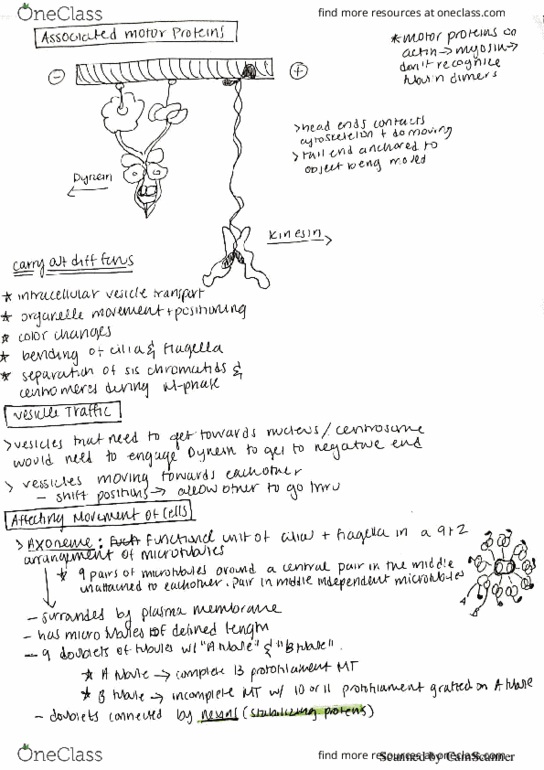 OneClass
find more resources at oneclass.com
Associated motor Proteins
* motor proteins on
actin → myosin →
don't recognize
dimers
⊖
⊕
> head ends contacts
cytoskeleton + do moving
> tail end anchored to
object being moved
Dynein
Kinesin
carry out diff
* intracellular vesicle transport
* organelle movement + positioning
* color changes
* bending of cilia & flagella
* separation of sis chromatids &
centromeres during M-phase
Vesicle Traffic
> vesicles that need to get towards nucleus / centrosome
would need to engage Dynein to get to negative end
> vessicles moving towards eachother
- shift positions → allow other to go thru
Affecting Movement of Cells
> Axoneme: functional unit of cilia + flagella in a 9+2
arrangement of microtubules
* 9 pairs of microtubules around a central pair in the middle
unattached to eachother. Pair in middle independent microtubules
- surrounded by plasma membrane
- has microtubules of defined length
- 9 doublets of tubules w/ "A tubule" & "B tubule".
* A tubule → complete 13 protofilament MT
* B tubule → incomplete MT w/ 10 or 11 protofilament grafted on A tubule
- doublets connected by nexins (stabilizing proteins)
OneClass
find more resources at oneclass.com
Scanned by CamScanner